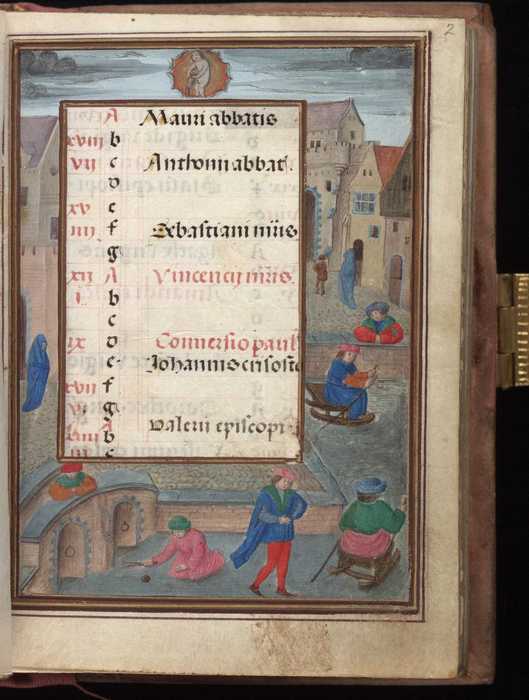 2
A Mauri abbatis
xviii b
vii c Anthonii abbat.
d
xv e
iiii f Sebastiani mris
g
xii A Vincencii mris.
i b
c
d
ix e Conversio pauli
f Johannis crisosto
xvii g
A
b Valerii episcopi
c